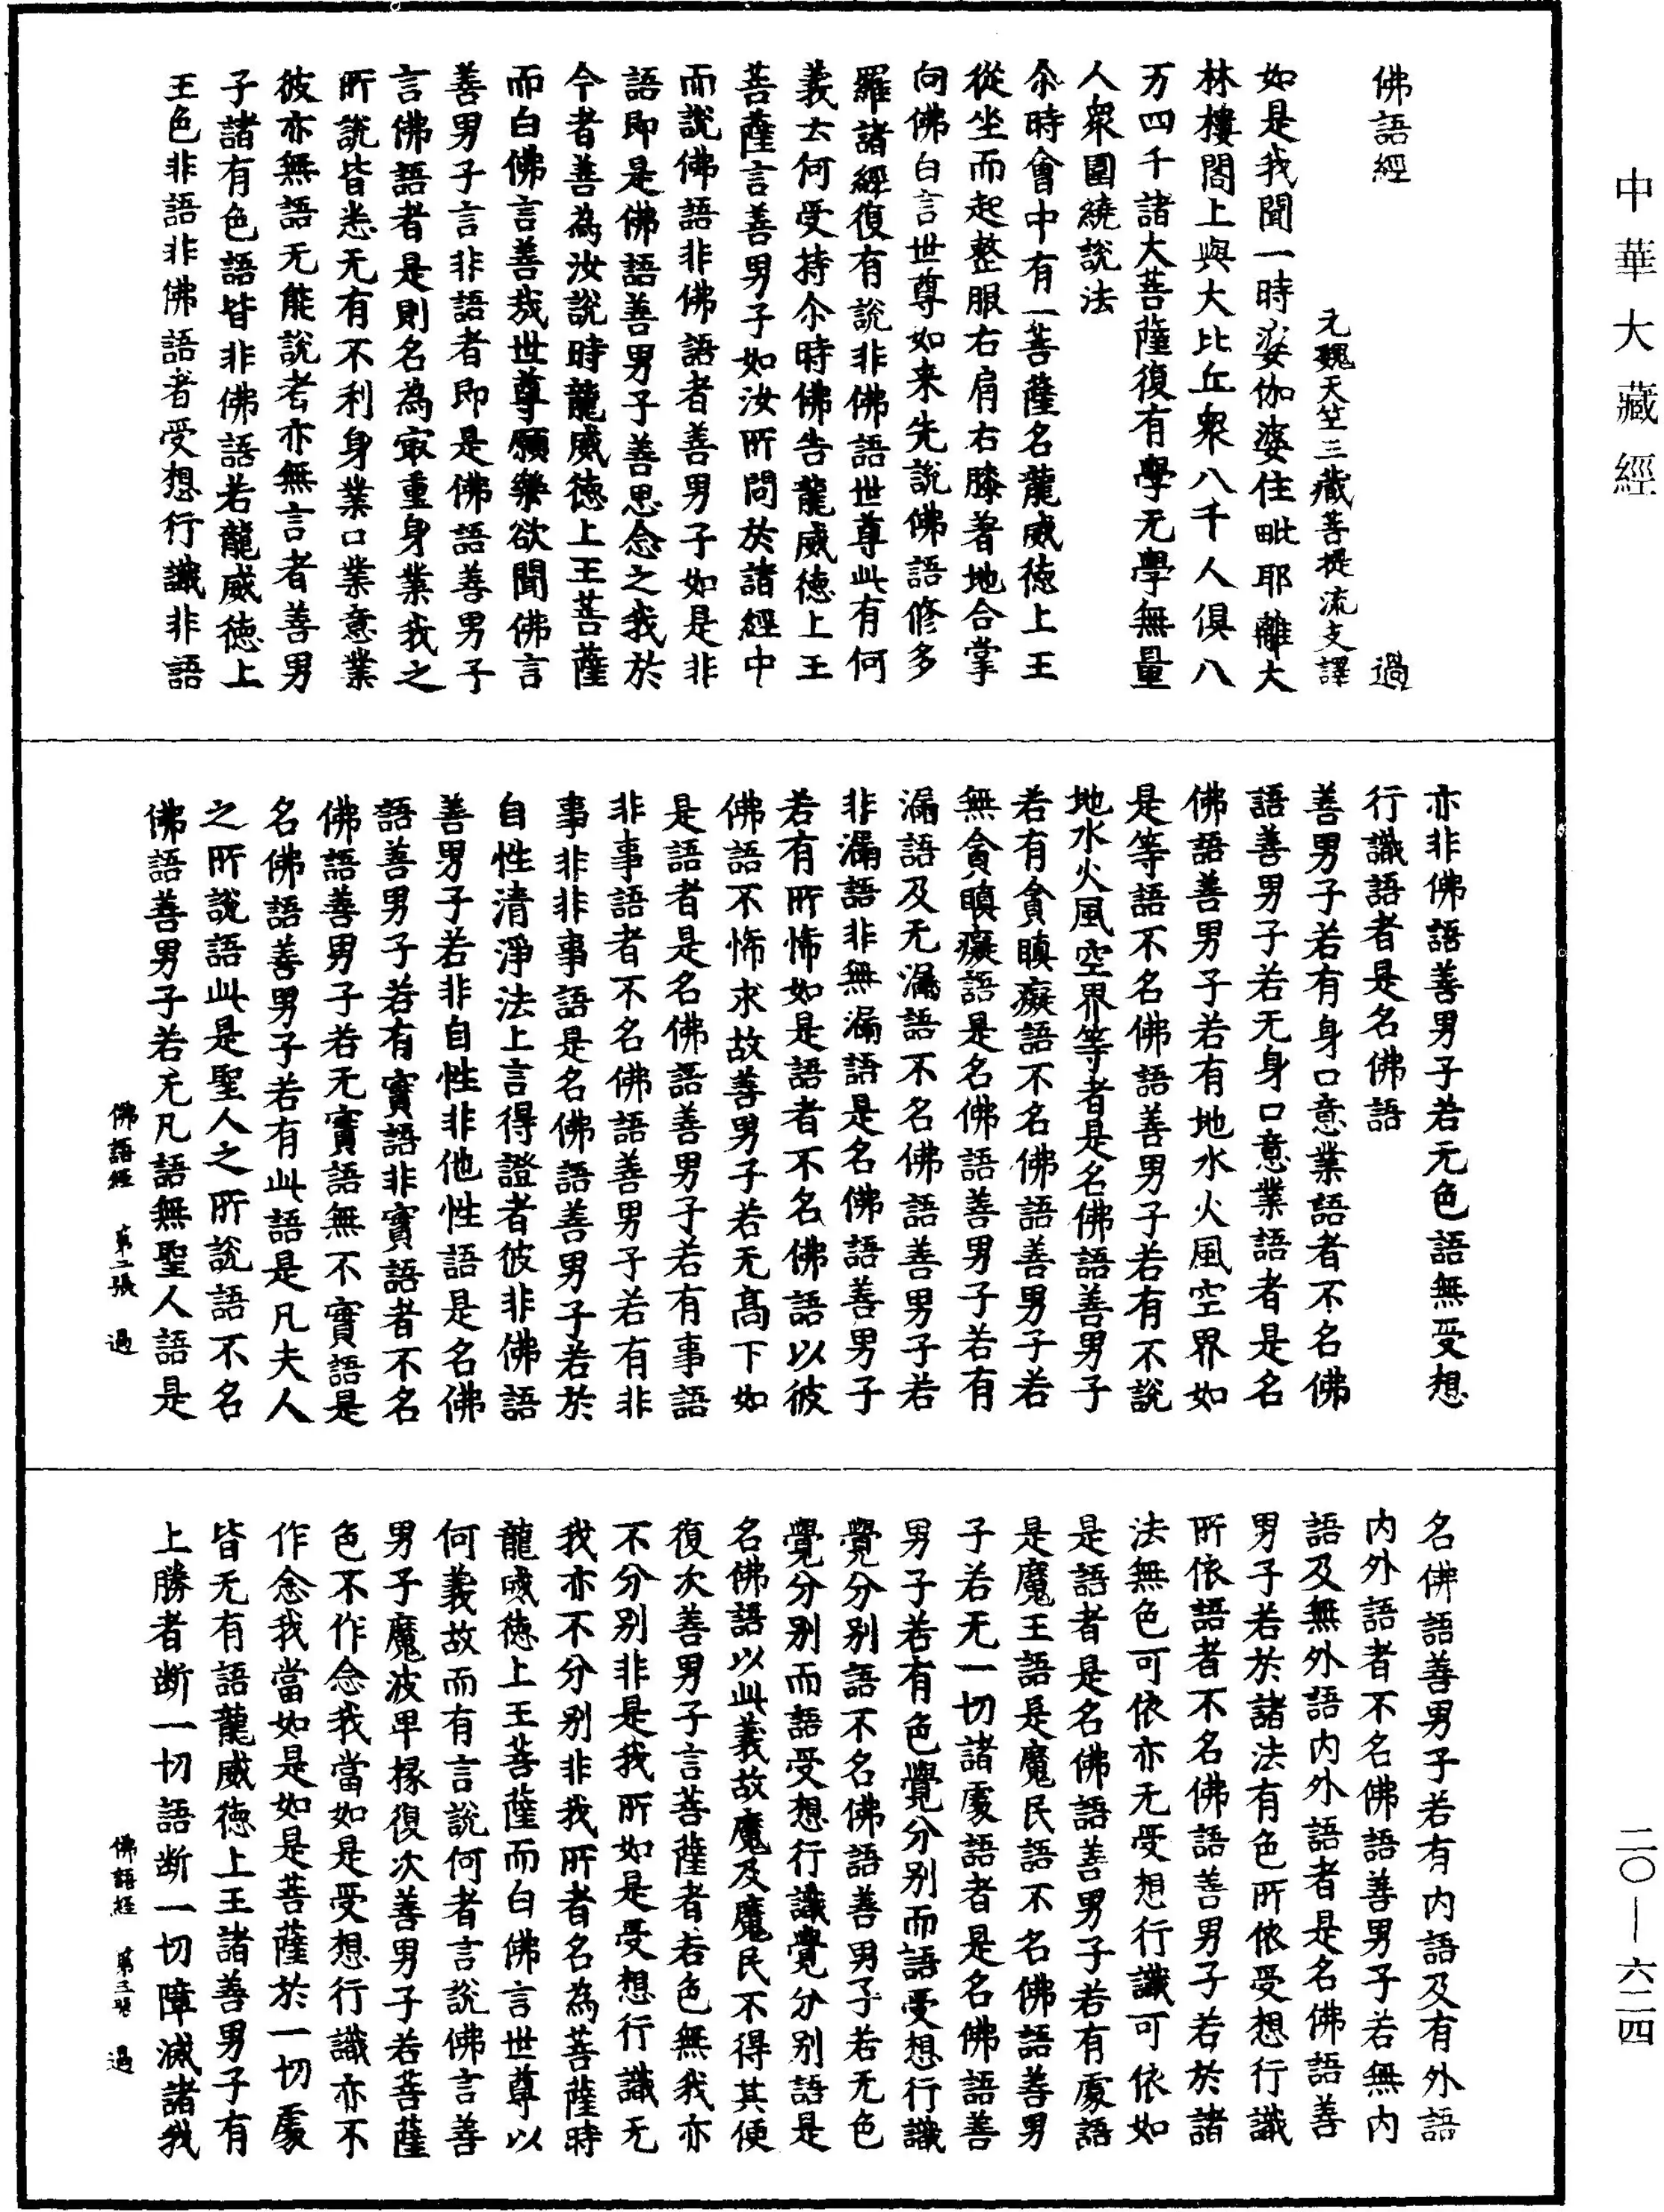 中華大藏經
佛語經　過
元魏天竺三藏菩提流支譯
如是我聞一時婆伽婆住毗耶離大
林樓閣上與大比丘衆八千人俱八
万四千諸大菩薩復有學无學無量
人衆圍繞說法
尒時會中有一菩薩名龍威德上王
從坐而起整服右肩右膝著地合掌
向佛白言世尊如来先說佛語修多
羅諸經復有說非佛語世尊此有何
義云何受持尒時佛告龍威德上王
菩薩言善男子如汝所問於諸經中
而說佛語非佛語者善男子如是非
語即是佛語善男子善思念之我於
今者善為汝說時龍威德上王菩薩
而白佛言善哉世尊願樂欲聞佛言
善男子言非語者即是佛語善男子
言佛語者是則名為㝡重身業我之
所說皆悉无有不利身業口業意業
彼亦無語无能說者亦無言者善男
子諸有色語皆非佛語若龍威德上
王色非語非佛語者受想行識非語
亦非佛語善男子若无色語無受想
行識語者是名佛語
善男子若有身口意業語者不名佛
語善男子若无身口意業語者是名
佛語善男子若有地水火風空界如
是等語不名佛語善男子若有不說
地水火風空界等者是名佛語善男子
若有貪瞋癡語不名佛語善男子若
無貪瞋癡語是名佛語善男子若有
漏語及无漏語不名佛語善男子若
非漏語非無漏語是名佛語善男子
若有所怖如是語者不名佛語以彼
佛語不怖求故善男子若无髙下如
是語者是名佛語善男子若有事語
非事語者不名佛語善男子若有非
事非非事語是名佛語善男子若於
自性清淨法上言得證者彼非佛語
善男子若非自性非他性語是名佛
語善男子若有實語非實語者不名
佛語善男子若无實語無不實語是
名佛語善男子若有此語是凡夫人
之所說語此是聖人之所說語不名
佛語善男子若无凡語無聖人語是
佛語經　第二張　過
名佛語善男子若有内語及有外語
内外語者不名佛語善男子若無内
語及無外語内外語者是名佛語善
男子若於諸法有色所依受想行識
所依語者不名佛語善男子若於諸
法無色可依亦无受想行識可依如
是語者是名佛語善男子若有處語
是魔王語是魔民語不名佛語善男
子若无一切諸處語者是名佛語善
男子若有色覺分别而語受想行識
覺分别語不名佛語善男子若无色
覺分别而語受想行識覺分别語是
名佛語以此義故魔及魔民不得其便
復次善男子言菩薩者若色無我亦
不分别非是我所如是受想行識无
我亦不分别非我所者名為菩薩時
龍威德上王菩薩而白佛言世尊以
何義故而有言說何者言說佛言善
男子魔波卑掾復次善男子若菩薩
色不作念我當如是受想行識亦不
作念我當如是如是菩薩於一切處
皆无有語龍威德上王諸善男子有
上勝者断一切語断一切障滅諸我
佛語經　第三張　過
二〇—六二四